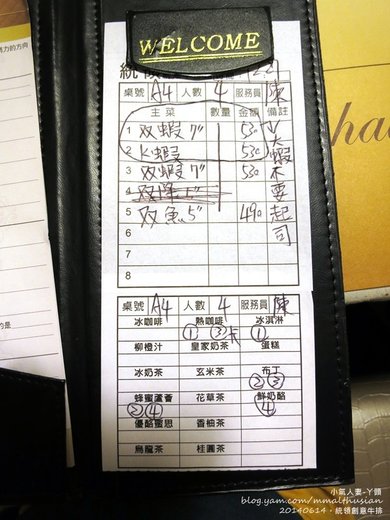 WELCOME
桌號 A4 人數 4 服務員 陳
主菜 數量 金額 備註
1 双蝦 7" 530
2 K蝦 530
3 双蝦 7" 530
4
5 双魚 5" 490
6
7
8
大蝦不要起司
桌號 A4 人數 4 服務員 陳
冰咖啡 熱咖啡 冰淇淋
① ③卡 ①
柳橙汁 皇家奶茶 蛋糕
冰奶茶 玄米茶 布丁
② ③
蜂蜜蘆薈 花草茶 鮮奶酪
② ④ ④
優酪蜜思 香柚茶
烏龍茶 桂圓茶
小氣人妻-丫頭
blog.yam.com/mmalthusian
20140614，統領創意牛排